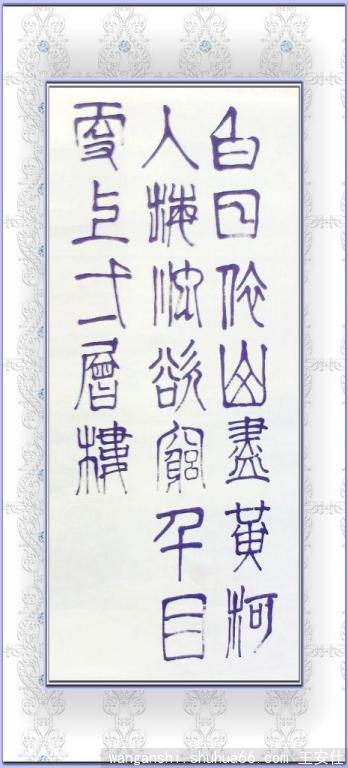 白日依山盡黃河
入海流欲窮千目
更上弌層樓
wanganshi.shuhua66.com 王安仕